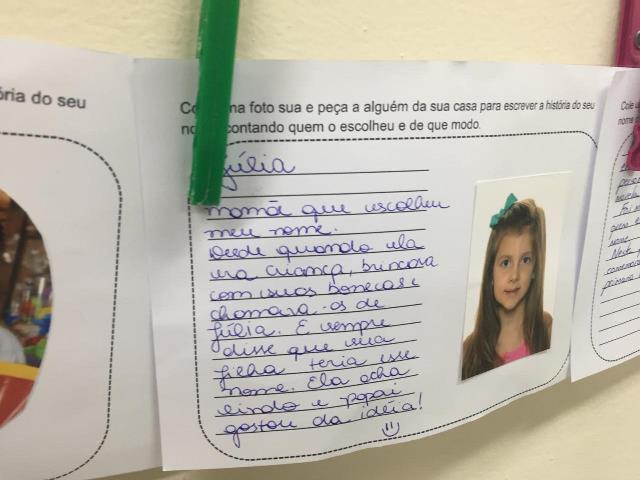 ória do seu
Co ma foto sua e peça a alguém da sua casa para escrever a história do seu
no contando quem o escolheu e de que modo.
Júlia
mamãe que escolheu
meu nome.
Desde quando ela
era criança, brincava
com suas bonecas e
chamava-as de
Júlia. E sempre
disse que sua
filha teria esse
nome. Ela acha
lindo e papai
gostou da idéia!
Cole
nome